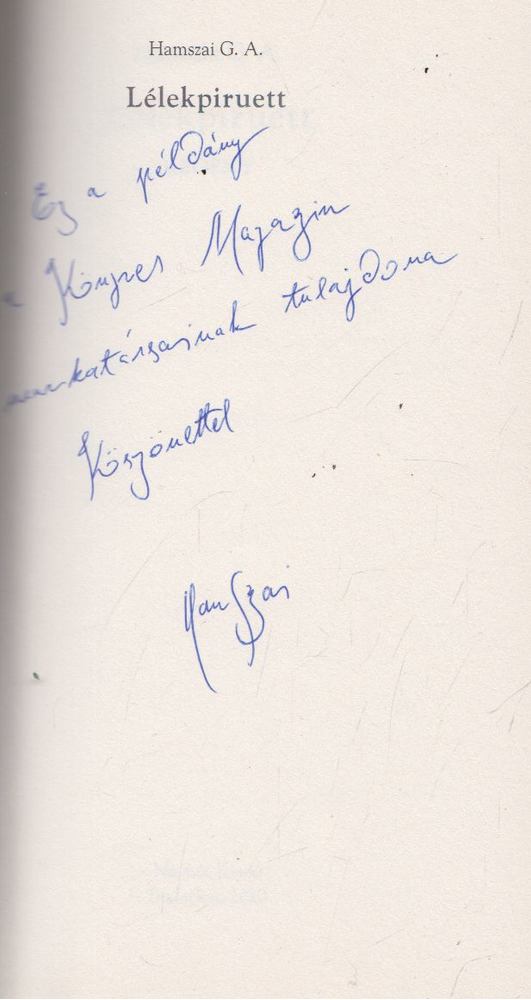 Hamszai G. A.
Lélekpiruett
Ez a példány
a Könyves Magazin
munkatársainak tulajdona
Köszönettel
Hamszai